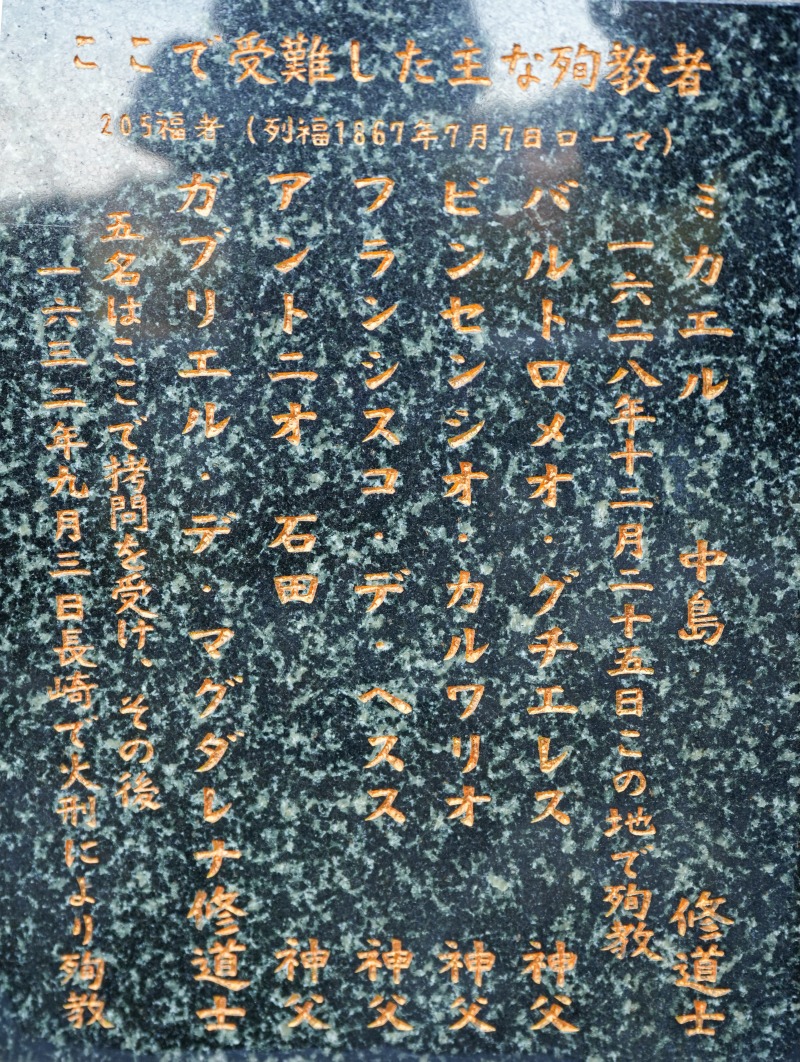 ここで受難した主な殉教者
205福者（列福1867年7月7日ローマ）
ミカエル　中島　修道士
一六二八年十二月二十五日この地で殉教
バルトロメオ・グチエレス　神父
ビンセンシオ・カルワリオ　神父
フランシスコ・デ・ヘスス　神父
アントニオ　石田　神父
ガブリエル・デ・マグダレナ修道士
五名はここで拷問を受け、その後
一六三二年九月三日長崎で火刑により殉教